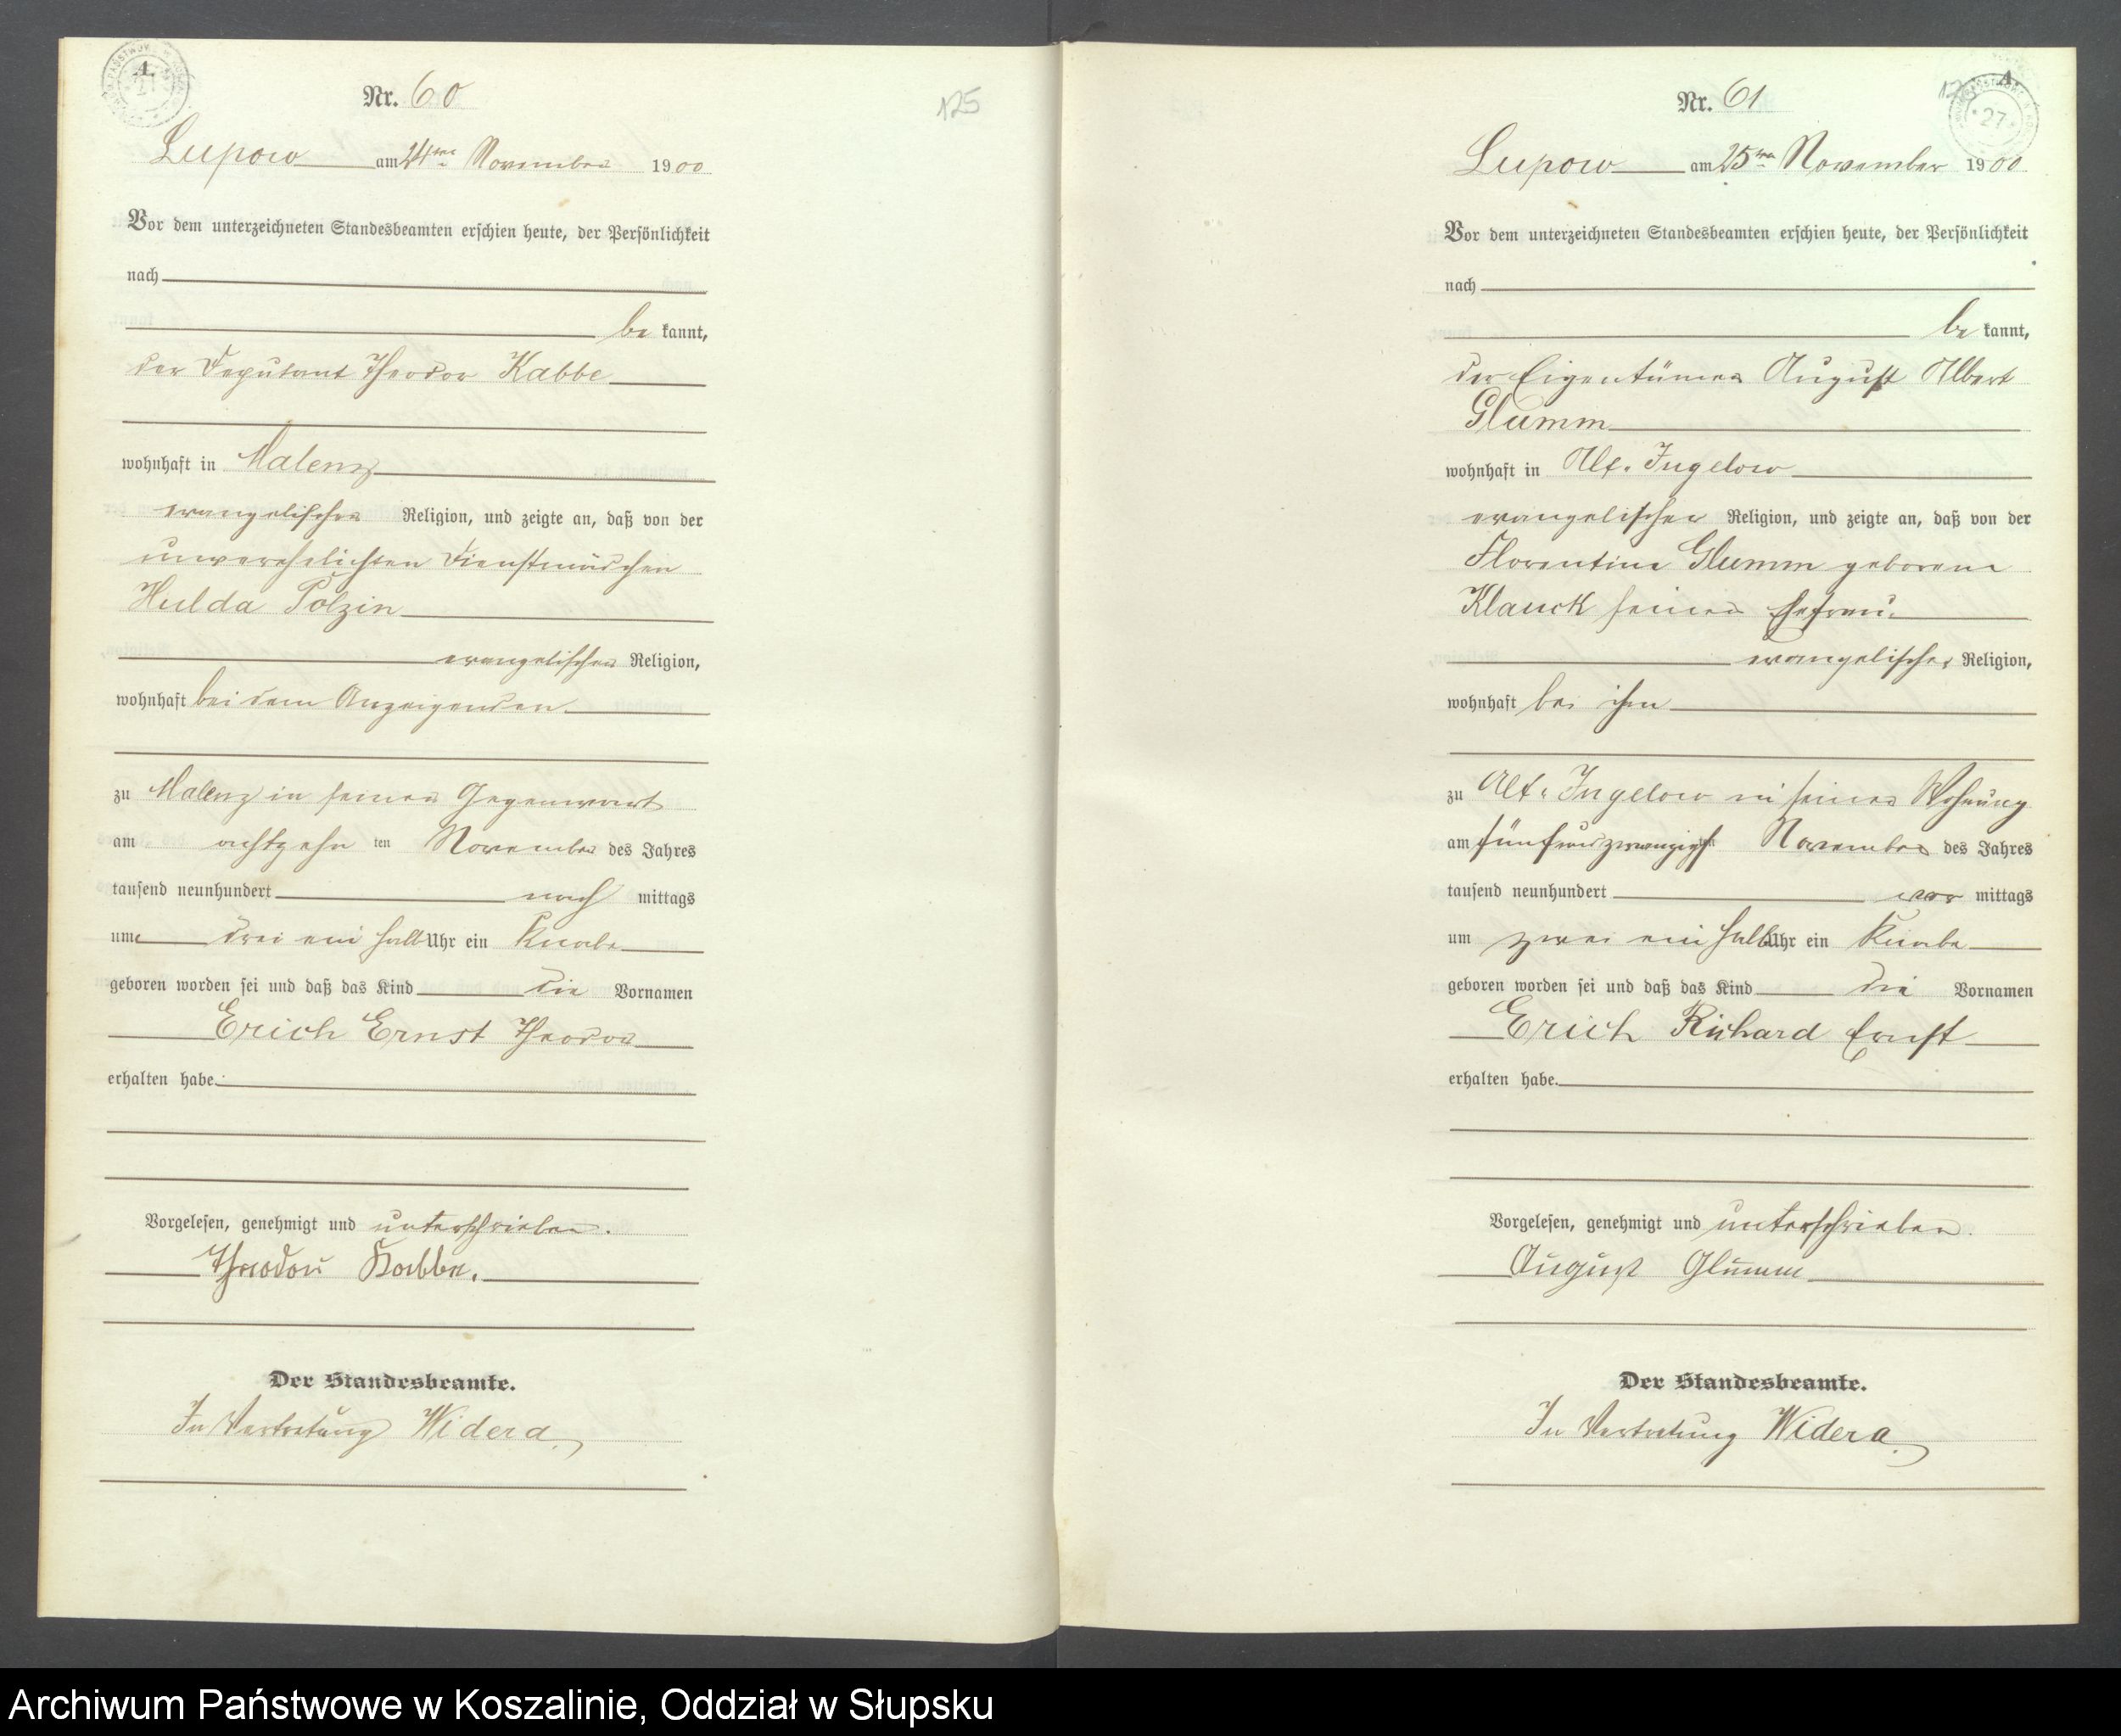 A.
Nr. 60
125
Lupow am 24ten November 1900
Vor dem unterzeichneten Standesbeamten erschien heute, der Persönlichkeit
nach
be kannt,
der Deputant Theodor Kabbe
wohnhaft in Malenz
evangelischer Religion, und zeigte an, daß von der
unverehelichten Dienstmädchen
Hulda Polzin
evangelischer Religion,
wohnhaft bei dem Anzeigenden
zu Malenz in seiner Gegenwart
am achtzehn ten November des Jahres
tausend neunhundert nach mittags
um drei ein halb Uhr ein Knabe
geboren worden sei und daß das Kind die Vornamen
Erich Ernst Theodor
erhalten habe.
Vorgelesen, genehmigt und unterschrieben.
Theodor Kabbe.
Der Standesbeamte.
In Vertretung Widera.
A.
27
Nr. 61
Lupow am 25ten November 1900
Vor dem unterzeichneten Standesbeamten erschien heute, der Persönlichkeit
nach
be kannt,
der Eigentümer August Albert
Glumm
wohnhaft in Alt-Jugelow
evangelischer Religion, und zeigte an, daß von der
Florentine Glumm geborene
Klauck seiner Ehefrau.
evangelischer Religion,
wohnhaft bei ihm
zu Alt-Jugelow in seiner Wohnung
am fünfundzwanzigsten November des Jahres
tausend neunhundert vor mittags
um zwei ein halb Uhr ein Knabe
geboren worden sei und daß das Kind die Vornamen
Erich Richard Ernst
erhalten habe.
Vorgelesen, genehmigt und unterschrieben.
August Glumm
Der Standesbeamte.
In Vertretung Widera.
Archiwum Państwowe w Koszalinie, Oddział w Słupsku